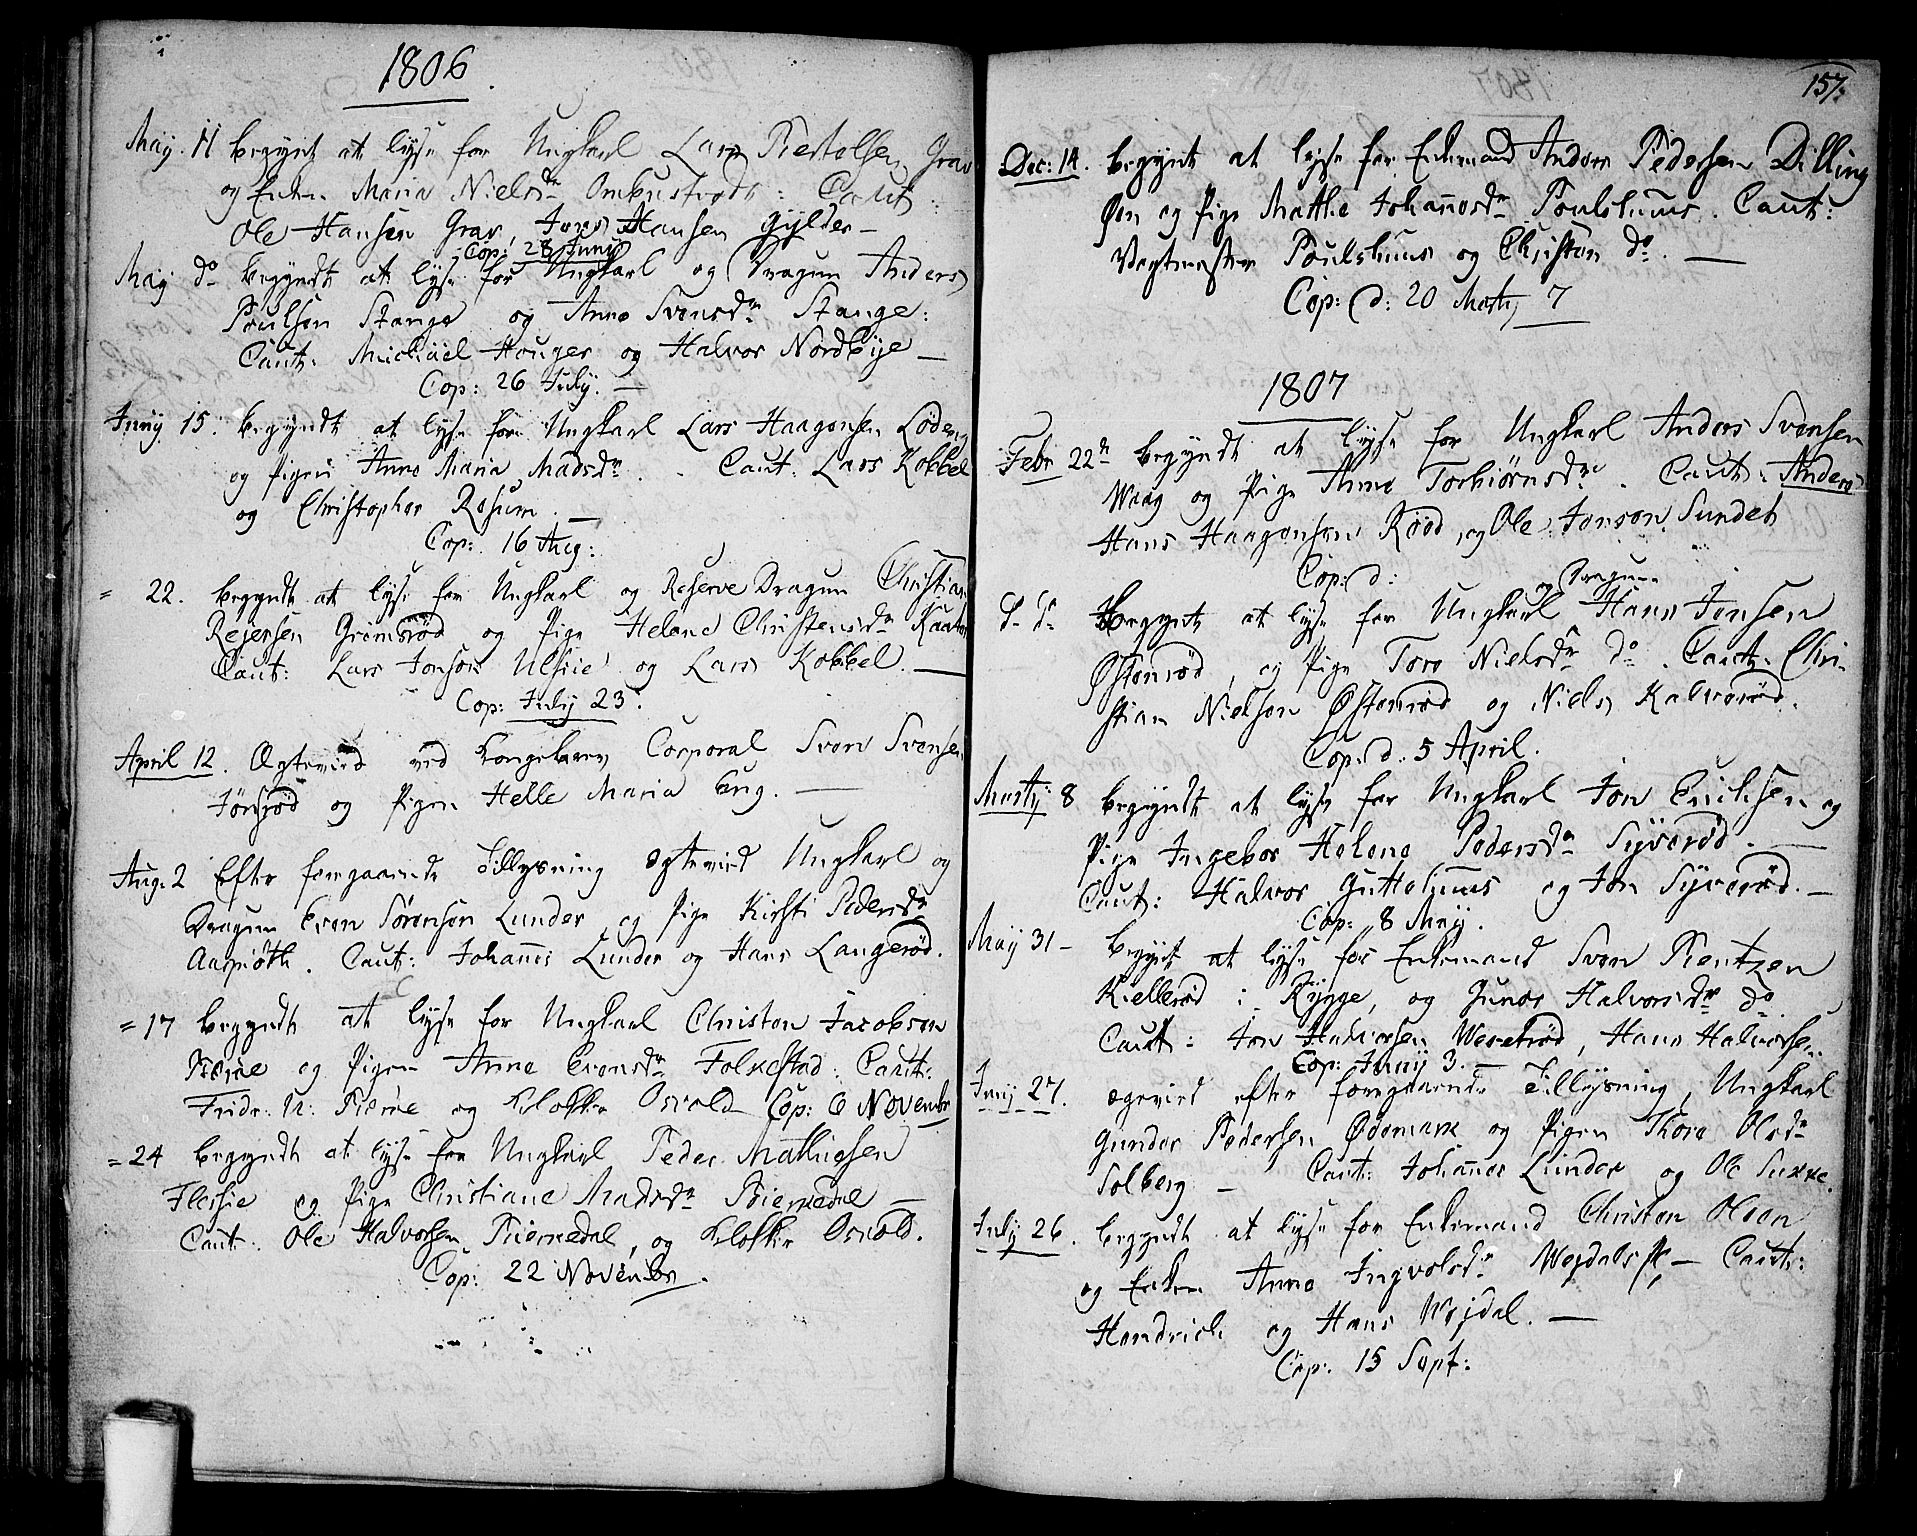 1806
May. 11 begynt at lyse for Ungkarl Lars Grav
og Enken Maria Nielsdr : Caut:
Ole Hansen Grav, Jens Hansen Gylder –
Cop: 28 Juny
May do begyndt at lyse for Ungkarl og Dragun Anders
Poulsen Stange og Anne Svensdr Stange:
Caut. Michael Houger og Halvor Nordbye –
Cop: 26 July. –
Juny 15. begyndt at lyse for Ungkarl Lars Haagensen Löden
og Pigen Anne Maria Madsdr. Caut: Lars Kobbel
og Christopher Rosum. –
Cop: 16 Aug:
= 22. begyndt at lyse for Ungkarl og Reserve Dragun Christian
Rejersen Grimsröd og Pige Helene Christensdr
Caut: Lars Jonsen og Lars Kobbel. –
Cop: July 23.
April 12. Ægtevied ved Kongebrev Corporal Sven Svensen
Jonsröd og Pigen Helle Maria Eng. –
Aug. 2 Efter foregaaende Tillysning ægtevied Ungkarl og
Dragun Even Sörensen Lunder og Pige Kirsti Pedersdr
. Caut: Johannes Lunder og Hans Langeröd.
= 17 begyndt at lyse for Ungkarl Christen Jacobsen
og Pigen Anne Evensdr Folkestad: Caut:
Fridr: N: og Klokker Osvold Cop: 6 Novembr
= 24 begyndt at lyse for Ungkarl Peder Mathiesen
Flessie og Pige Christiane Madsdr –
Caut: Ole Halvorsen , og Klokker Osvold.
Cop: 22 Novembr.
157.
Dec: 14. begynt at lyse for Enkemand Anders Pedersen Dilling
Øen og Pige Mathe Johanesdr Poulshuus. Caut:
Vagtmester Poulshuus og Christen do. –
Cop: d: 20 Marty 7
1807
Febr 22n begyndt at lyse for Ungkarl Anders Svensen
Waag og Pige Anne Torbiörnsdr. Caut: Anders
Hans Haagensen Rööd, og Ole Jensen Sundet
Cop: d:
og Dragun
d. do. Begynt at lyse for Ungkarl Hans Jensen
Østenröd, og Pige Tore Nielsdr do. Caut. Chri-
stian Nielsen Østenröd og Niels Kalveröd.
Cop: d. 5 April.
Marty 8 begyndt at lyse for Ungkarl Jon Erichsen og
Pige Ingebor Helene Pedersdr Syveröd. –
Caut: Halvor Guttehuus og Jon Syveröd. –
Cop: 8 May.
May 31 – begynt at lyse for Enkemand Sven Rentzen
Kielleröd i Rygge, og Gunor Halvorsdr do.
Caut: Jon Halvorsen , Hans Halvorsen
Cop: Juny 3. –
Juny 27. ægevied efter foregaaende Tillysning, Ungkarl
Gunder Pedersen Ødemark og Pigen Thore Olsdr
Solberg – Caut: Johannes Lunder og Ole
July 26. begyndt at lyse for Enkemand Christen Olsen
og Enken Anne Ingvoldsdr – Caut:
Hendrich og Hans Wejdal. –
Cop: 15 Sept: